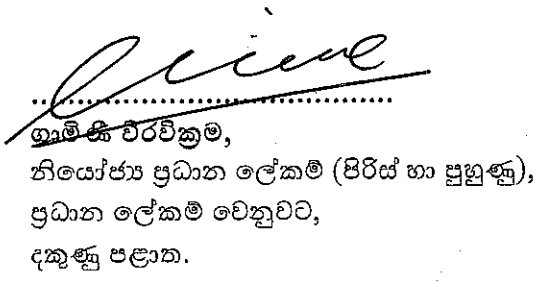 ගාමිණී වීරවික්‍රම,
නියෝජ්‍ය ප්‍රධාන ලේකම් (පිරිස් හා පුහුණු),
ප්‍රධාන ලේකම් වෙනුවට,
දකුණු පළාත.